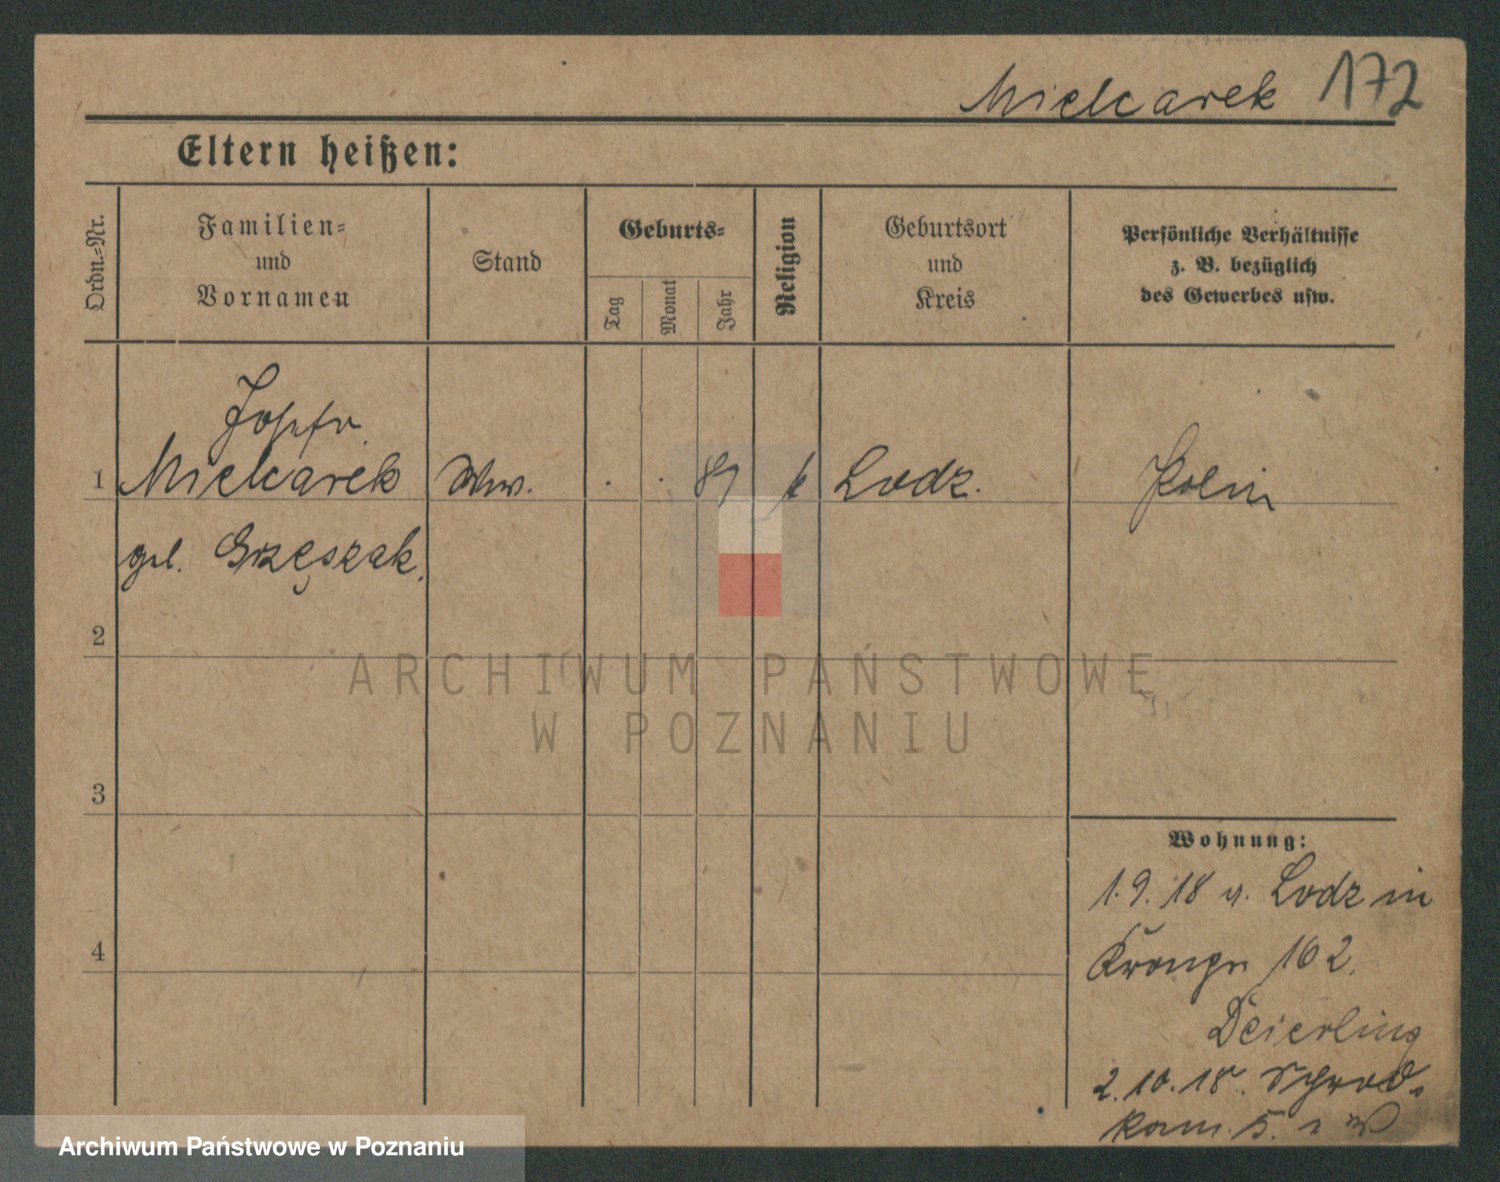 Mielcarek 172
Eltern heißen:
Ordn.=Nr.
Familien=
und
Vornamen
Stand
Geburts=
Tag
Monat
Jahr
Religion
Geburtsort
und
Kreis
Persönliche Verhältnisse
z. B. bezüglich
des Gewerbes usw.
Josefa
1 Mielcarek Ww. . . 81 k Lodz.
geb. Grzęszak.
2
3
4
Wohnung:
1.9.18 v. Lodz in
162.
Deierling
2.10.18.
5.
ARCHIWUM PAŃSTWOWE
W POZNANIU
Archiwum Państwowe w Poznaniu